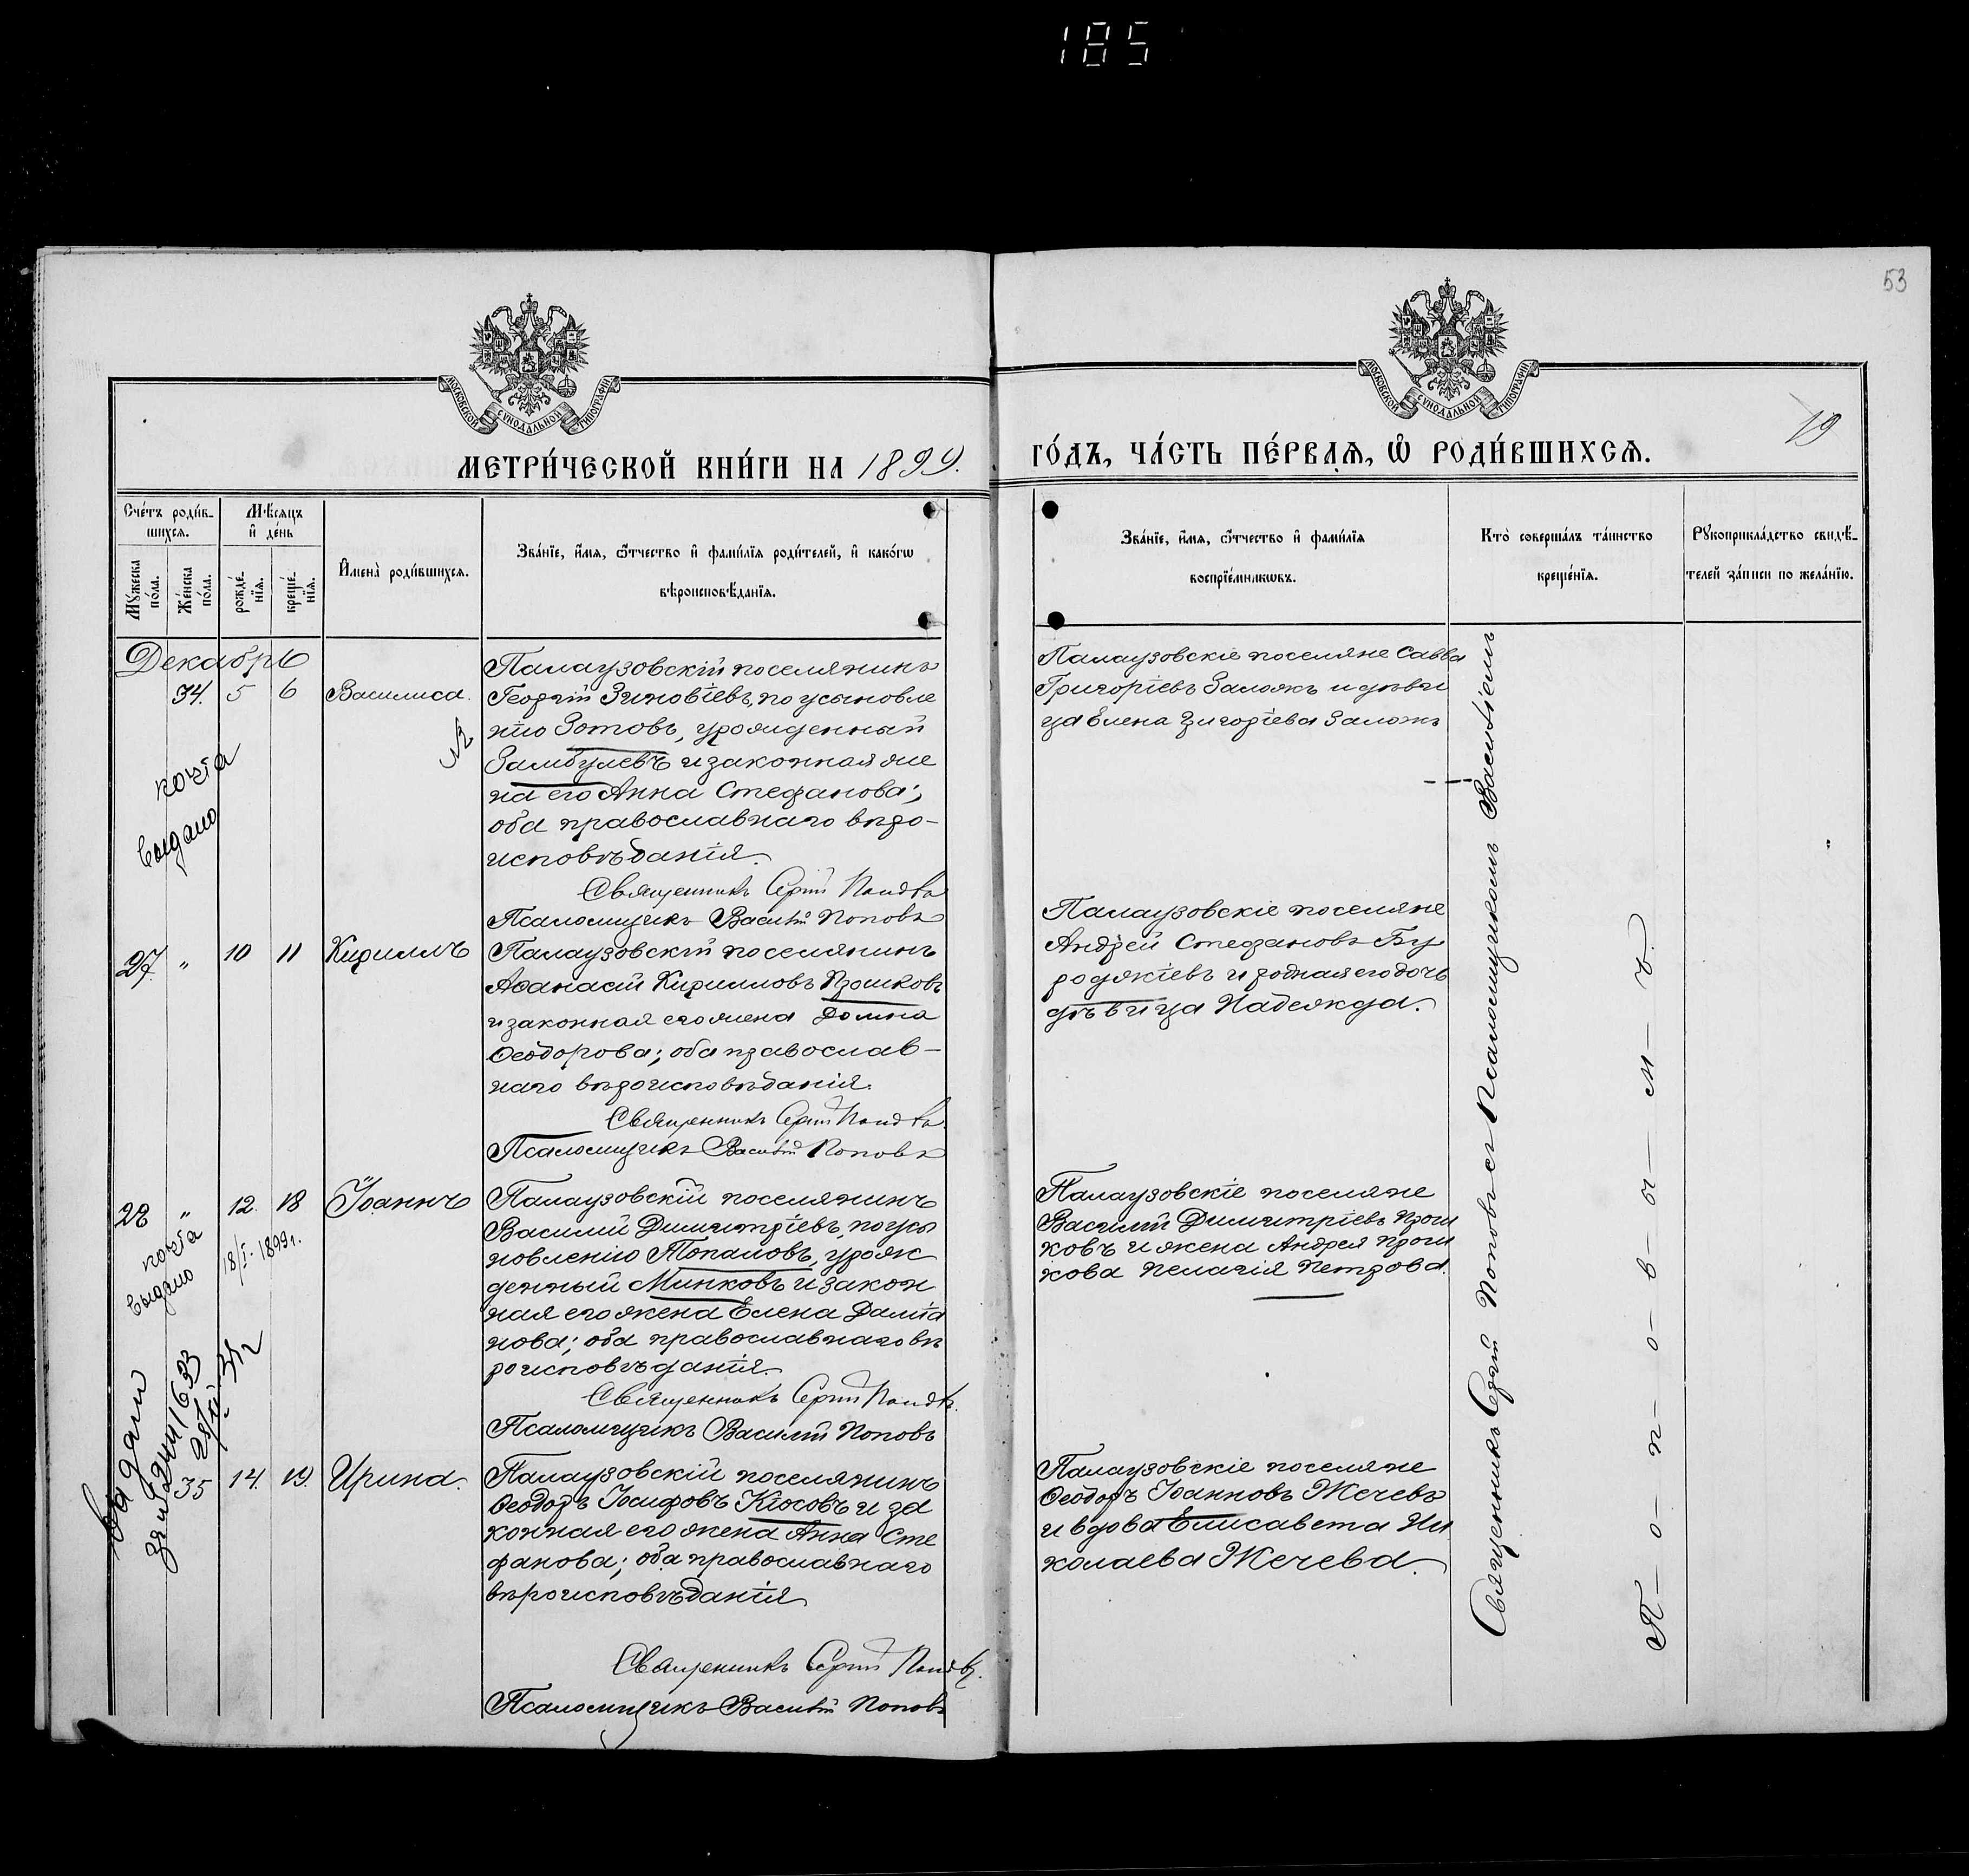 185
53
19
МОСКОВСКОЙ СѴНОДАЛЬНОЙ ТИПОГРАФІИ
МОСКОВСКОЙ СѴНОДАЛЬНОЙ ТИПОГРАФІИ
МЕТРИ́ЧЕСКОЙ КНИ́ГИ НА 1899.
ГО́ДЪ, ЧА́СТЬ ПЕ́РВАѦ, Ѡ҆ РОДИ́ВШИХСѦ.
Сче́тъ роди́в-
шихсѧ.
Мѣ́сѧцъ
и҆ де́нь
Мꙋ́жеска
по́ла.
Же́нска
по́ла.
рожде́-
нїѧ.
креще́-
нїѧ.
И҆мена̀ роди́вшихсѧ.
Зва́нїе, и҆́мѧ, ѻ҆́тчество и҆ фами́лїѧ роди́телей, и҆ како́гѡ
вѣроисповѣ́данїѧ.
Зва́нїе, и҆́мѧ, ѻ҆́тчество и҆ фами́лїѧ
воспрїе́мникѡвъ.
Кто̀ соверша́лъ та́инство
креще́нїѧ.
Рꙋкоприкла́дство свидѣ́-
телей за́писи по жела́нїю.
Декабрь
34. 5 6 Василиса.
Палаузовскій поселянинъ
Георгій Зиновіевъ, по усыновле
нію Зотовъ, урожденный
Замбулевъ и законная же
на его Анна Стефанова;
оба православнаго вѣро-
исповѣданія.
Священникъ Сергій
Псаломщикъ Василій Поповъ
копія
выдано
Палаузовскіе поселяне Савва
Григоріевъ Заложъ и дѣви
ца Елена Григоріева Заложъ
27. " 10 11 Кириллъ
Палаузовскій поселянинъ
Аѳанасій Кирилловъ Прошковъ
и законная его жена Домна
Ѳеодорова; оба православ-
наго вѣроисповѣданія.
Священникъ Сергій
Псаломщикъ Василій Поповъ
Палаузовскіе поселяне
Андрей Стефановъ Бу
роджіевъ и родная его дочь
дѣвица Надежда.
28 " 12. 18 Іоаннъ
Палаузовскій поселянинъ
Василій Димитріевъ, по усы
новленію Топаловъ, урож
денный Минковъ и закон
ная его жена Елена Даміа
нова; оба православнаго вѣ
роисповѣданія.
Священникъ Сергій
Псаломщикъ Василій Поповъ
копія
выдано
18/I. 1899 г.
Палаузовскіе поселяне
Василій Димитріевъ Прош
ковъ и жена Андрея Прош
кова Пелагія Петрова.
35 14. 19. Ирина.
Палаузовскій поселянинъ
Ѳеодоръ Іосифовъ Кіосовъ и за
конная его жена Анна Сте
фанова; оба православнаго
вѣроисповѣданія
Священникъ Сергій
Псаломщикъ Василій Поповъ
Палаузовскіе поселяне
Ѳеодоръ Іоанновъ Жечевъ
и вдова Елисавета Ни
колаева Жечева.
Священникъ Сергій Поповъ съ Псаломщикомъ Василіемъ
П-о-п-о-в-ы-м-ъ.